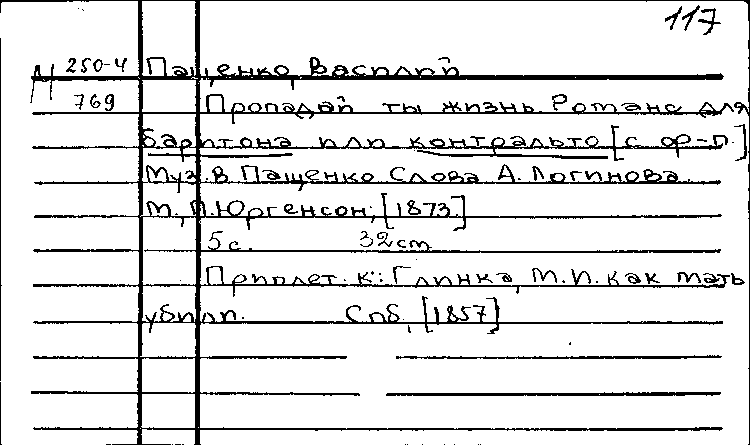 117
М 250-4 Пащенко, Василий
769 Пропадай ты жизнь. Романс для
баритона или контральто [с ф-п.]
Муз. В. Пащенко Слова А. Логинова.
М., П. Юргенсон, [1873.]
5 с. 32 см
Приплет. к: Глинка, М.И. Как мать
убили. Спб, [1857]